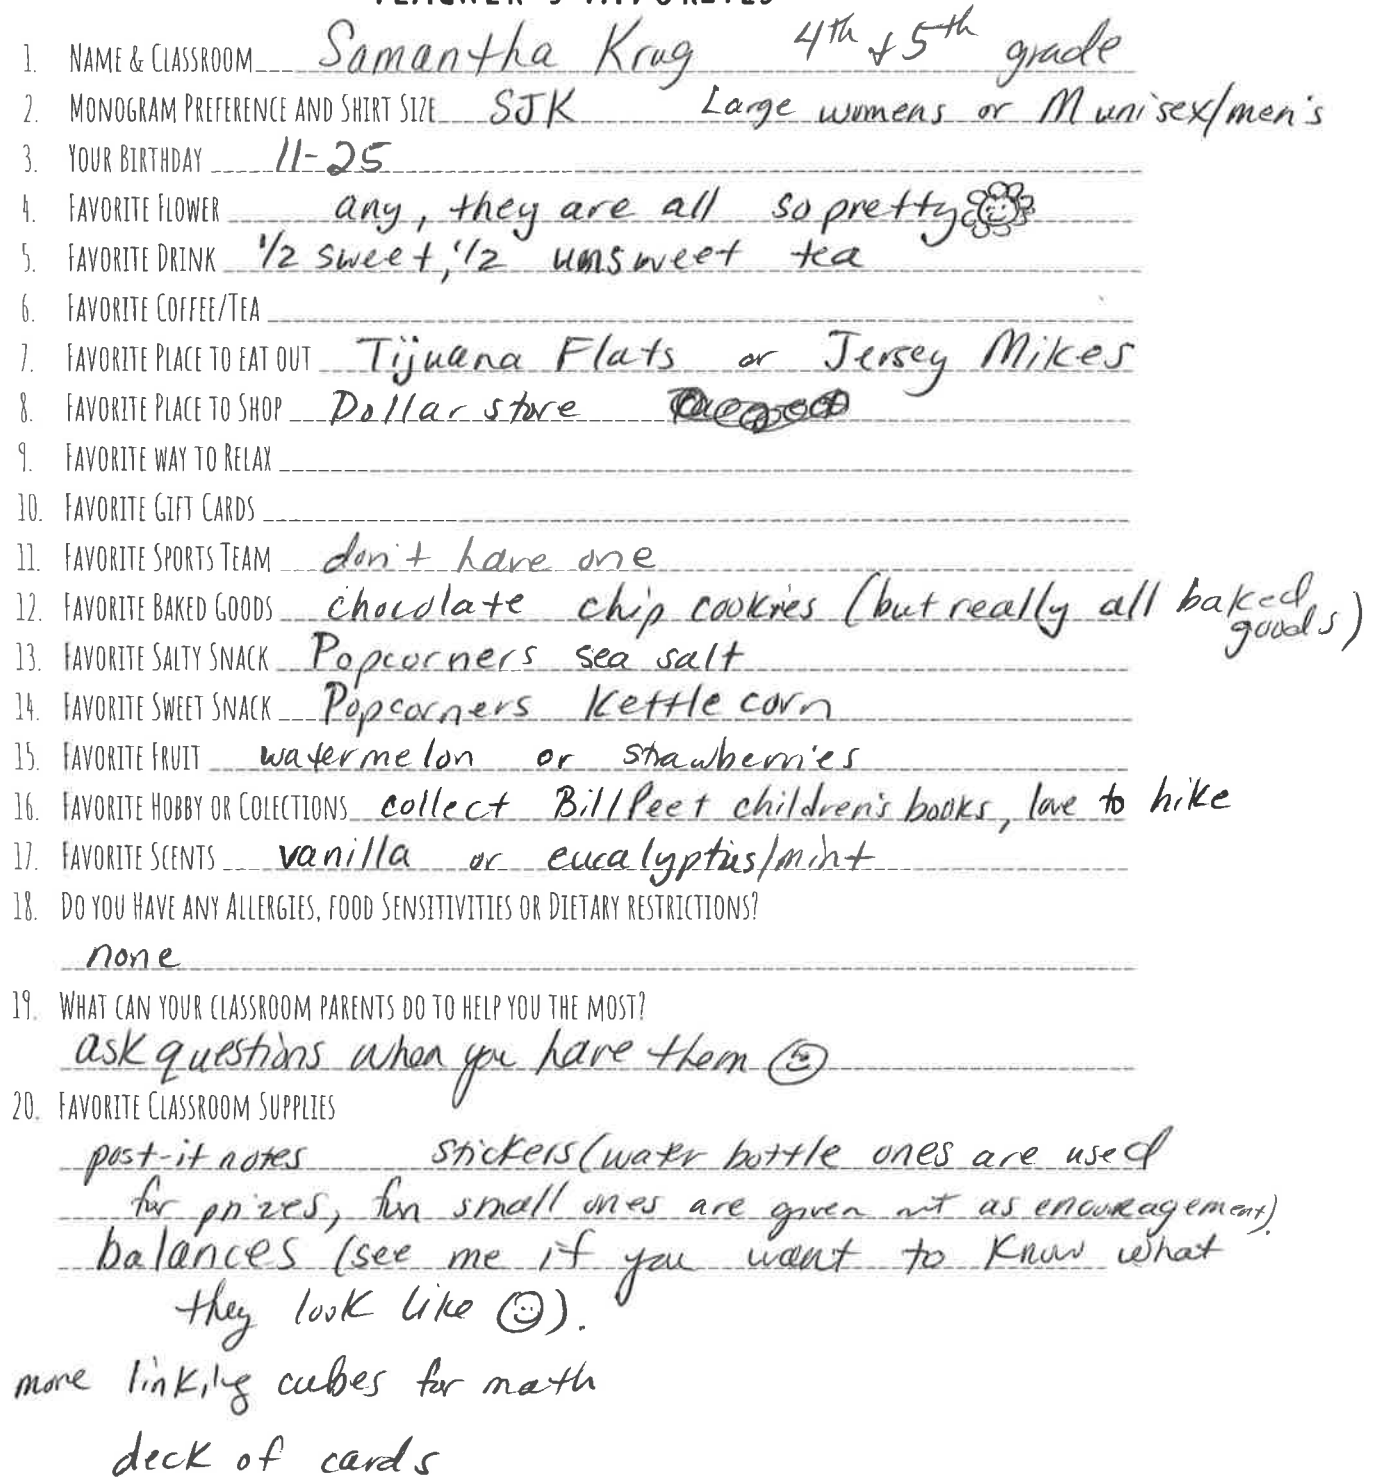 TEACHER'S FAVORITES
1. NAME & CLASSROOM Samantha Krug 4th & 5th grade
2. MONOGRAM PREFERENCE AND SHIRT SIZE SJK Large womens or M unisex/men's
3. YOUR BIRTHDAY 11-25
4. FAVORITE FLOWER any, they are all so pretty
5. FAVORITE DRINK 1/2 sweet, 1/2 unsweet tea
6. FAVORITE COFFEE/TEA
7. FAVORITE PLACE TO EAT OUT Tijuana Flats or Jersey Mikes
8. FAVORITE PLACE TO SHOP Dollar store
9. FAVORITE WAY TO RELAX
10. FAVORITE GIFT CARDS
11. FAVORITE SPORTS TEAM don't have one
12. FAVORITE BAKED GOODS chocolate chip cookies (but really all baked goods)
13. FAVORITE SALTY SNACK Popcorners sea salt
14. FAVORITE SWEET SNACK Popcorners Kettle corn
15. FAVORITE FRUIT watermelon or strawberries
16. FAVORITE HOBBY OR COLECTIONS collect Bill Peet children's books, love to hike
17. FAVORITE SCENTS vanilla or eucalyptus/mint
18. DO YOU HAVE ANY ALLERGIES, FOOD SENSITIVITIES OR DIETARY RESTRICTIONS?
none
19. WHAT CAN YOUR CLASSROOM PARENTS DO TO HELP YOU THE MOST?
ask questions when you have them
20. FAVORITE CLASSROOM SUPPLIES
post-it notes stickers (water bottle ones are used
for prizes, fun small ones are given out as encouragement).
balances (see me if you want to know what
they look like).
more linking cubes for math
deck of cards